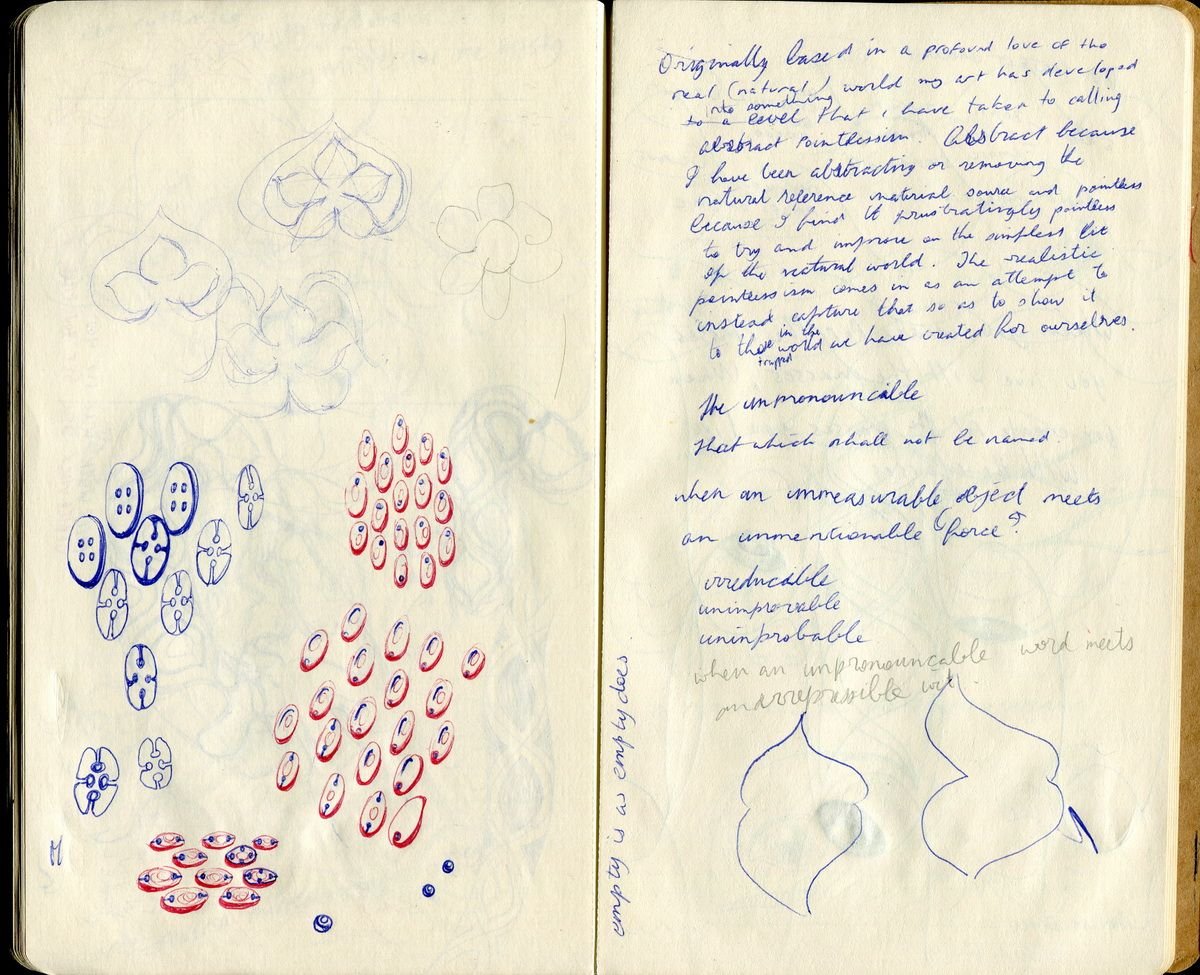 Originally based in a profound love of the
real (natural) world my art has developed
into something
to a level that i have taken to calling
abstract Pointlessism. Abstract because
I have been abstracting or removing the
natural reference material source and pointless
because I find it frustratingly pointless
to try and improve on the simpless bit
of the natural world. The realistic
pointlessism comes in as an attempt to
instead capture that so as to show it
to those trapped in the world we have created for ourselves.
the unpronouncable
that which shall not be named.
when an unmeasurable object meets
an unmentionable force?
irreducable
unimprovable
uninprobable
when an unpronouncable word meets
an irrepressible
empty is as empty does